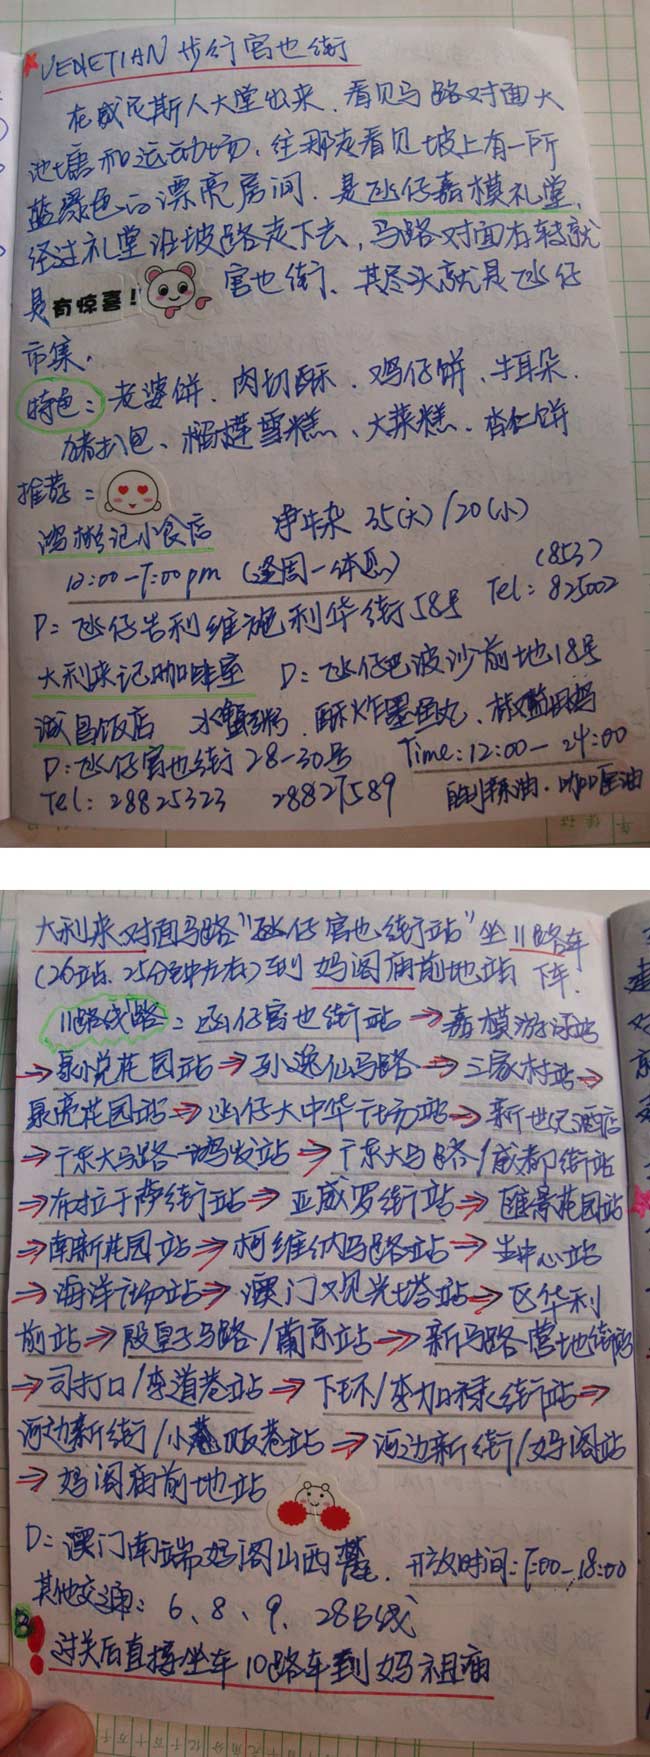 VENETIAN 步行官也街
在威尼斯人大堂出来，看见马路对面大
池塘和运动场，往那走看见坡上有一所
蓝绿色的漂亮房间，是氹仔嘉模礼堂，
经过礼堂沿坡路走下去，马路对面右转就
是 有惊喜！ 官也街、其尽头就是氹仔
市集，
特色：老婆饼、肉切酥、鸡仔饼、牛耳朵、
猪扒包、榴莲雪糕、大菜糕、杏仁饼
推荐：
鸿彬记小食店 净牛杂 35(大)/20(小)
12:00-7:00pm (逢周一休息) (853)
Tel: 825002
D：氹仔告利维施利华街58号
大利来记咖啡室 D：氹仔巴波沙前地18号
诚昌饭店 水蟹粥、酥炸墨鱼丸、椒盐田鸡
D：氹仔官也街28-30号 Time:12:00-24:00
Tel: 28825323 28827589 自制辣油、咖喱油
大利来对面马路"氹仔官也街站"坐11路车
(26站、25分钟左右)到妈阁庙前地站下车.
11路线路：氹仔官也街站→嘉模游泳站
→泉悦花园站→孙逸仙马路→三家村站→
泉亮花园站→氹仔大中华广场站→新世纪酒店
→广东大马路-鸿发站→广东大马路/成都街站
→布拉干萨街站→亚威罗街站→匯景花园站
→南新花园站→柯维纳马路站→生中心站
→海洋广场站→澳门观光塔站→区华利
前站→殷皇子马路/南京站→新马路·营地街站
→司打口/李道巷站→下环/李加禄街站→
河边新街/小巷站→河边新街/妈阁站
→妈阁庙前地站
D：澳门南端妈阁山西麓. 开放时间：7:00-18:00
其他交通：6、8、9、28B线
过关后直接坐车10路车到妈祖庙